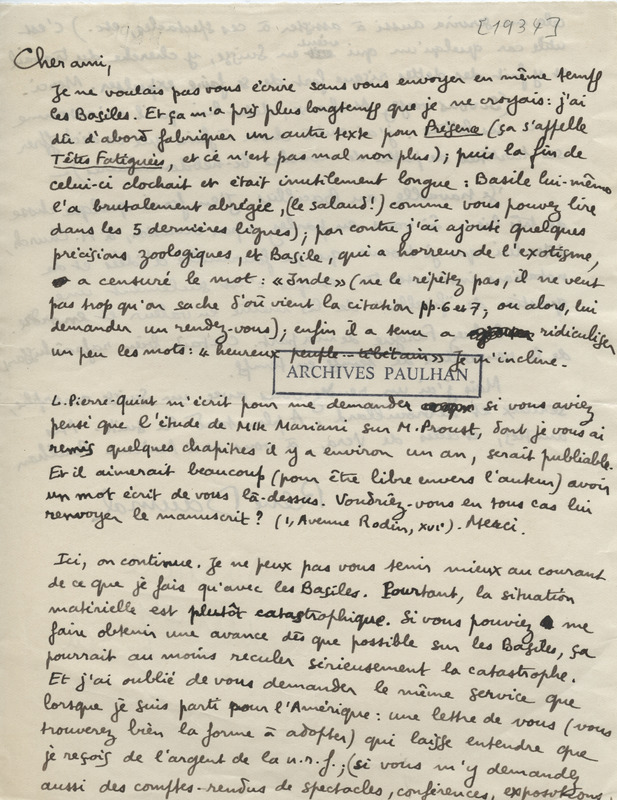 [1934]
Cher ami,
Je ne voulais pas vous écrire sans vous envoyer en même temps
les Basiles. Et ça m'a pris plus longtemps que je ne croyais : j'ai
dû d'abord fabriquer un autre texte pour Présence (ça s'appelle
Têtes Fatiguées, et ce n'est pas mal non plus) ; puis la fin de
celui-ci clochait et était inutilement longue : Basile lui-même
l'a brutalement abrégée, (le salaud!) comme vous pouvez lire
dans les 5 dernières lignes) ; par contre j'ai ajouté quelques
précisions zoologiques, et Basile, qui a horreur de l'exotisme,
a censuré le mot : « Inde » (ne le répétez pas, il ne veut
pas trop qu'on sache d'où vient la citation pp. 6 et 7 ; ou alors, lui
demander un rendez-vous) ; enfin il a tenu a ridiculiser
un peu les mots : « heureux peuple tibétain » Je m'incline.
ARCHIVES PAULHAN
L. Pierre-Quint m'écrit pour me demander si vous aviez
pensé que l'étude de Mlle Mariani sur M. Proust, dont je vous ai
remis quelques chapitres il y a environ un an, serait publiable.
Et il aimerait beaucoup (pour être libre envers l'auteur) avoir
un mot écrit de vous là-dessus. Voudriez-vous en tous cas lui
renvoyer le manuscrit ? (1, Avenue Rodin, XVIe). Merci.
Ici, on continue. Je ne peux pas vous tenir mieux au courant
de ce que je fais qu'avec les Basiles. Pourtant, la situation
matérielle est plutôt catastrophique. Si vous pouviez me
faire obtenir une avance dès que possible sur les Basiles, ça
pourrait au moins reculer sérieusement la catastrophe.
Et j'ai oublié de vous demander le même service que
lorsque je suis parti pour l'Amérique : une lettre de vous (vous
trouverez bien la forme à adopter) qui laisse entendre que
je reçois de l'argent de la n.r.f. ; (si vous m'y demandez
aussi des comptes-rendus de spectacles, conférences, expositions,